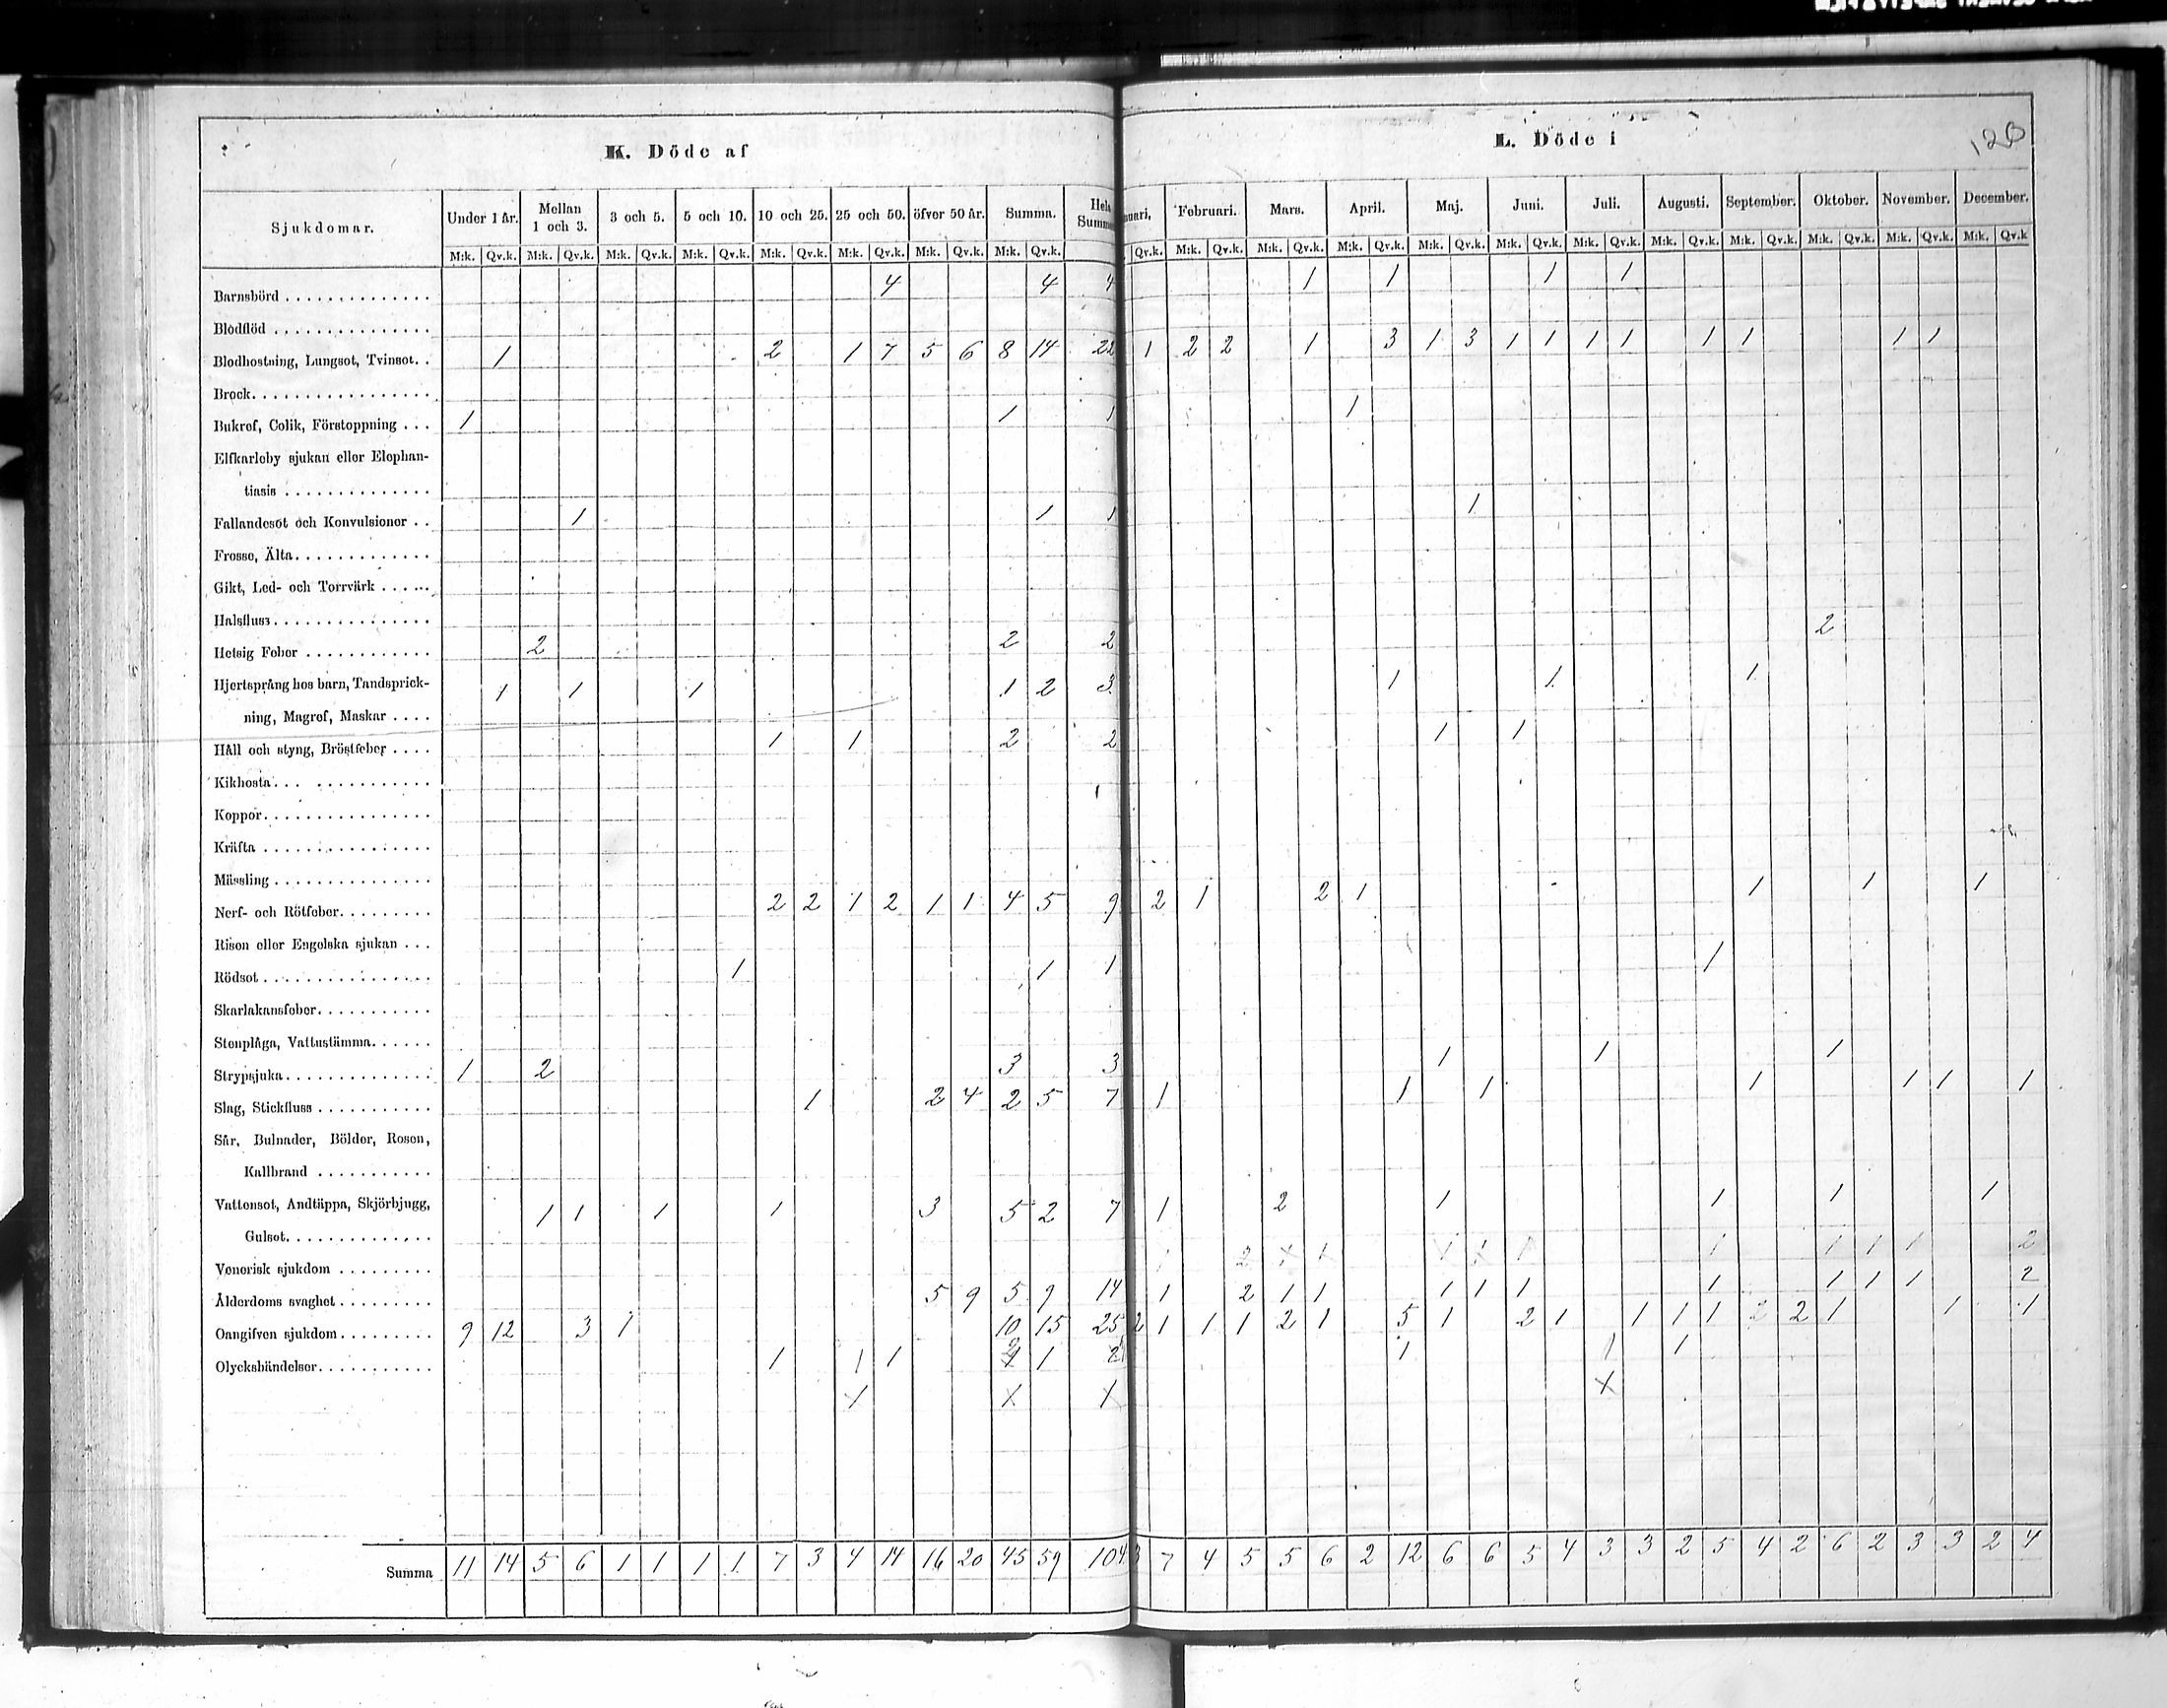 K. Döde af
L. Döde i
120
Sjukdomar. Under 1 år. Mellan 1 och 3. 3 och 5. 5 och 10. 10 och 25. 25 och 50. öfver 50 år. Summa. Hela Summa Februari. Mars. April. Maj. Juni. Juli. Augusti. September. Oktober. November. December.
M:k. Qv.k. M:k. Qv.k. M:k. Qv.k. M:k. Qv.k. M:k. Qv.k. M:k. Qv.k. M:k. Qv.k. M:k. Qv.k. Qv.k. M:k. Qv.k. M:k. Qv.k. M:k. Qv.k. M:k. Qv.k. M:k. Qv.k. M:k. Qv.k. M:k. Qv.k. M:k. Qv.k. M:k. Qv.k. M:k. Qv.k. M:k. Qv.k
Barnsbörd 4 4 4 1 1 1 1
Blodflöd
Blodhostning, Lungsot, Tvinsot. 1 2 1 7 5 6 8 14 22 1 2 2 1 3 1 3 1 1 1 1 1 1 1 1
Brock
Bukref, Colik, Förstoppning 1 1 1 1
Elfkarleby sjukan eller Elephan-
tiasis
Fallandesot och Konvulsioner 1 1 1 1
Frosso, Älta
Gikt, Led- och Torrvärk
Halsfluss
Hetsig Feber 2 2 2 2
Hjertsprång hos barn, Tandsprick- 1 1 1 1 2 3 1 1 1
ning, Magref, Maskar
Håll och styng, Bröstfeber 1 1 2 2 1 1
Kikhosta
Koppor
Kräfta
Mässling
Nerf- och Rötfeber 2 2 1 2 1 1 4 5 9 2 1 2 1 1 1 1
Risen eller Engelska sjukan
Rödsot 1 1 1 1
Skarlakansfeber
Stenplåga, Vattustämma
Strypsjuka 1 2 3 3 1 1 1
Slag, Stickfluss 1 2 4 2 5 7 1 1 1 1 1 1 1
Sår, Bulnader, Bölder, Rosen,
Kallbrand
Vattensot, Andtäppa, Skjörbjugg, 1 1 1 1 3 5 2 7 1 2 1 1 1 1
Gulsot
Venerisk sjukdom
Ålderdoms svaghet 5 9 5 9 14 1 2 1 1 1 1 1 1 1 1 1 2
Oangifven sjukdom 9 12 3 1 10 15 25 2 1 1 1 2 1 5 1 2 1 1 1 1 2 2 1 1 1
Olyckshändelser 1 1 1 1 1 1 1
Summa 11 14 5 6 1 1 1 1 7 3 4 14 16 20 45 59 104 3 7 4 5 5 6 2 12 6 6 5 4 3 3 2 5 4 2 6 2 3 3 2 4